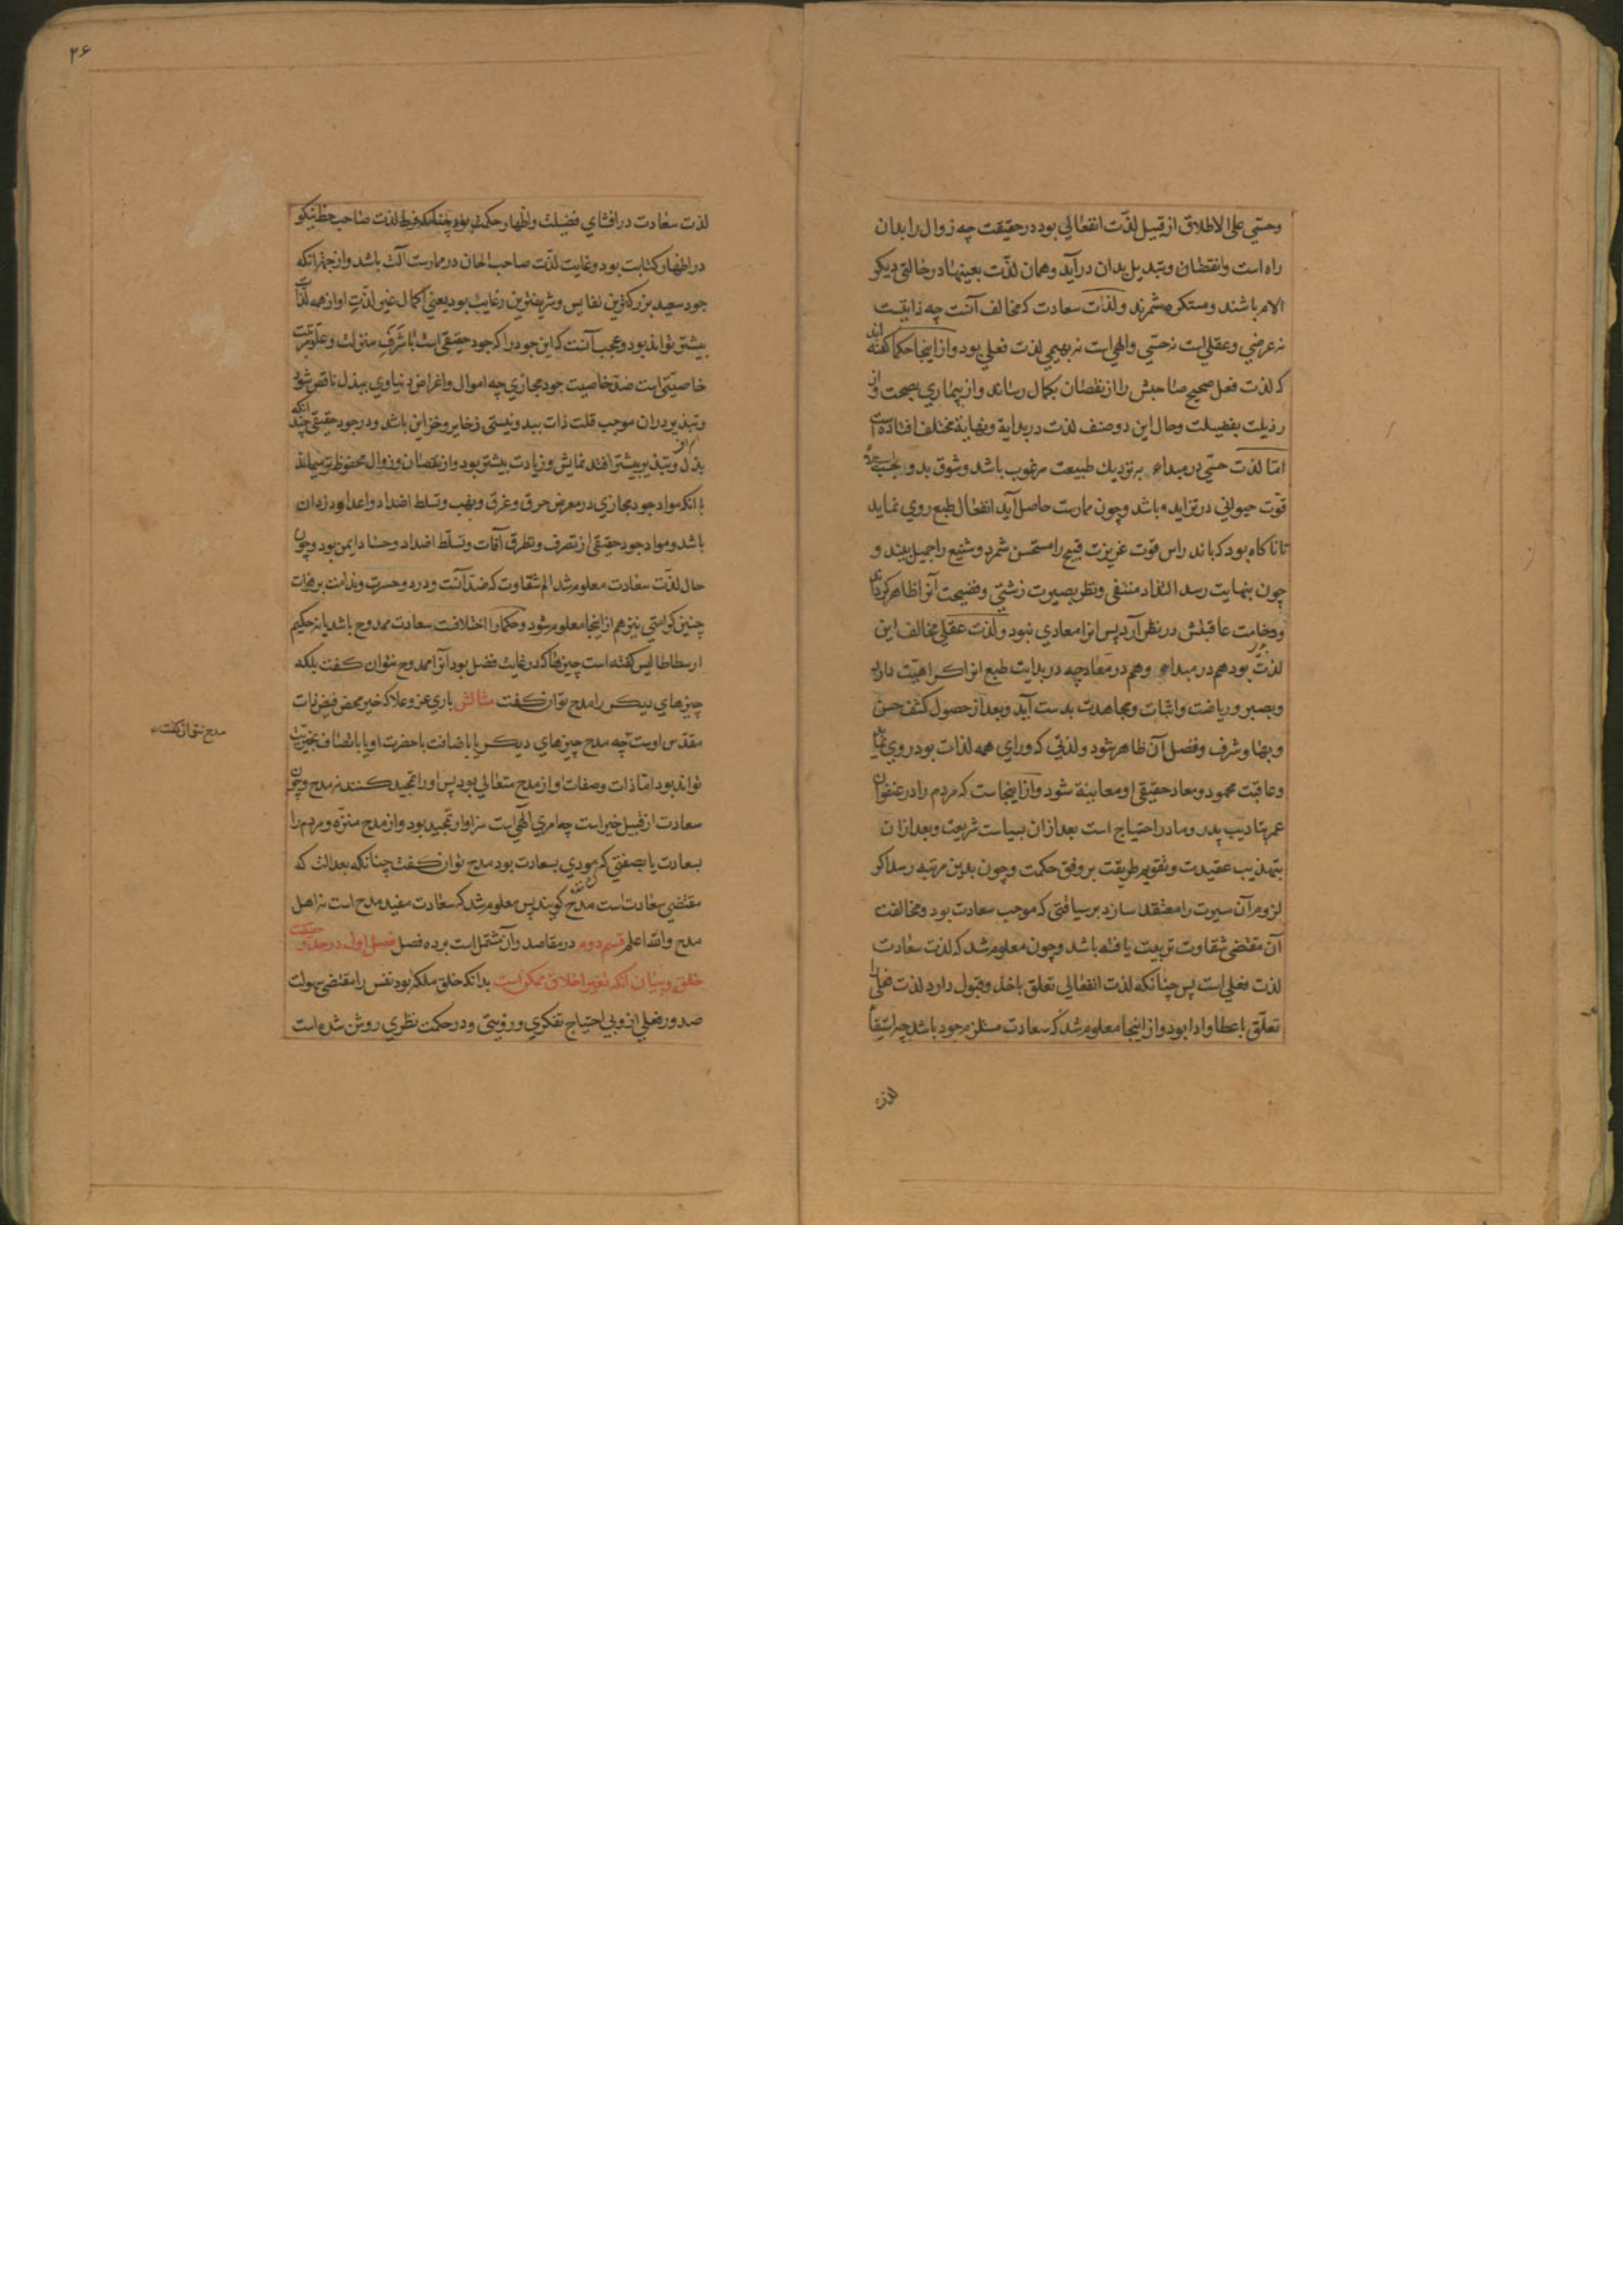 وحسّي علی الاطلاق از قبیل لذّت انفعالي بود در حقیقت چه زوال را بدان
راه است وانقضان وتبدیل بدان درآید وهمان لذّت بعینها در حالتی دیکر
الام باشند ومستکره شمرند ولذات سعادت که مخالف آنست چه ذاتیست
نه عرضي وعقلی است نه حسّي والهی است نه بهیمي لذت فعلي بود واز اینجا حکما کفته اند
که لذت فعل صحیح صاحبش را از نقصان بکمال رساند واز بیماري بصحت واز
رذیلت بفضیلت وحال این دو صنف لذت در بدایة ونهایة مختلف افتاده است
امّا لذّت حسّي در مبداء بر نزدیك طبیعت مرغوب باشد وشوق بدو
قوّت حیواني در تزاید باشد وچون ممارست حاصل آید انفعال طبع روي نماید
تا ناکاه بود که باندراس قوت غریزت قبیح را مستحسن شمرد وشنیع را جمیل بیند و
چون بنهایت رسد التذاد منتفی ونظر بصیرت زشتي وفضیحت آنرا ظاهر کرداند
ووخامت عاقبتش در نظر آرد پس انرا معادي نبود ولذت عقلي مخالف این
لذّت بود هم در مبداء وهم در معاد چه در بدایت طبع انرا کراهیّت دارد
وبصبر وریاضت واثبات ومجاهدت بدست آید وبعد از حصول کشف حسن
وبها وشرف وفضل آن ظاهر شود ولذتي که وراي همه لذات بود روي نماید
وعاقبت محمود ومعاد حقیقی او معاینة شود واز اینجاست که مردم را در عنفوان
عمر بتادیب پدر ومادر احتیاج است بعد ازان بسیاست شریعت وبعد ازان
بتهذیب عقیدت وتقویم طریقت بر وفق حکمت وچون بدین مرتبه رسد اکر
لزوم آن سیرت را معتقد سازد بر سیاقتي که موجب سعادت بود ومخالفت
آن مقتضي شقاوت تربیت یافته باشد وچون معلوم شد که لذت سعادت
لذت فعلي است پس چنانکه لذت انفعالي تعلق باخذ وقبول دارد لذت فعلي را
تعلّق باعطا وادا بود واز اینجا معلوم شد که سعادت مستلزم جود باشد چه استیفاء
لذت
۲۶
لذت سعادت در افشاي فضیلت واظهار حکمت بود چنانکه فرط لذت صاحب خط نیکو
در اظهار کتابت بود وغایت لذّت صاحب الحان در ممارست آلت باشد واز جهة آنکه
جود سعید بزرکترین نفایس وشریفترین رغایب بود یعني اکمال غیر لذّت او از همه لذات
بیشتر تواند بود وعجب آنست که این جود را که جود حقیقي است با شرف منزلت وعلوّ مرتبت
خاصیّتي است ضدّ خاصیت جود مجازي چه اموال واغراض دنیاوي ببذل ناقص شود
وتبذیر دران موجب قلت ذات بید ونیستي ذخایر وخزاین باشد ودر جود حقیقي چندانکه
بذل وتبذیر بیشتر افتد نمایش وزیادت بیشتر بود واز نقصان وزوال محفوظ‌تر میماند
با انکه مواد جود مجازي در معرض حرق وغرق ونهب وتسلط اضداد واعدا ودزدان
باشد ومواد جود حقیقي از تصرف وتطرق آفات وتسلّط اضداد وحسّاد ایمن بود وچون
حال لذّت سعادت معلوم شد الم شقاوت که ضدّ آنست ودرد وحسرت وندامت بر فوات
چنین کرامتي نیز هم از اینجا معلوم شود وحکما را اختلافست سعادت ممدوح باشد یا نه حکیم
ارسطاطالیس کفته است چیزها که در غایت فضل بود آنرا ممدوح نتوان کفت بلکه
چیزهاي دیکر را مدح توان کفت مثالش باري عز وعلا که خیر محض فیض ذات
مقدّس اوست چه مدح چیزهاي دیکر یا باضافت با حضرت او یا باتّصاف بخیریّت
تواند بود امّا ذات وصفات او از مدح متعالي بود پس او را تمجید کنند نه مدح وچون
سعادت از قبیل خیر است چه امري الهي است سزاوار تمجید بود واز مدح منزّه ومردم را
بسعادت یا بصفتي که مودي بسعادت بود مدح توان کفت چنانکه بعدالت که
مقتضي سعادت است مدح کویند پس معلوم شد که سعادت مفید مدح است نه اهل
مدح والله اعلم قسم دوم در مقاصد وآن مشتمل است بر ده فصل فصل اول در حد وحقیقت
خلق وبیان آنکه تغیر اخلاق ممکن است بدانکه خلق ملکه بود نفس را مقتضي سهولت
صدور فعلي از وبي احتیاج تفکري ورویتي ودر حکمت نظري روشن شده است